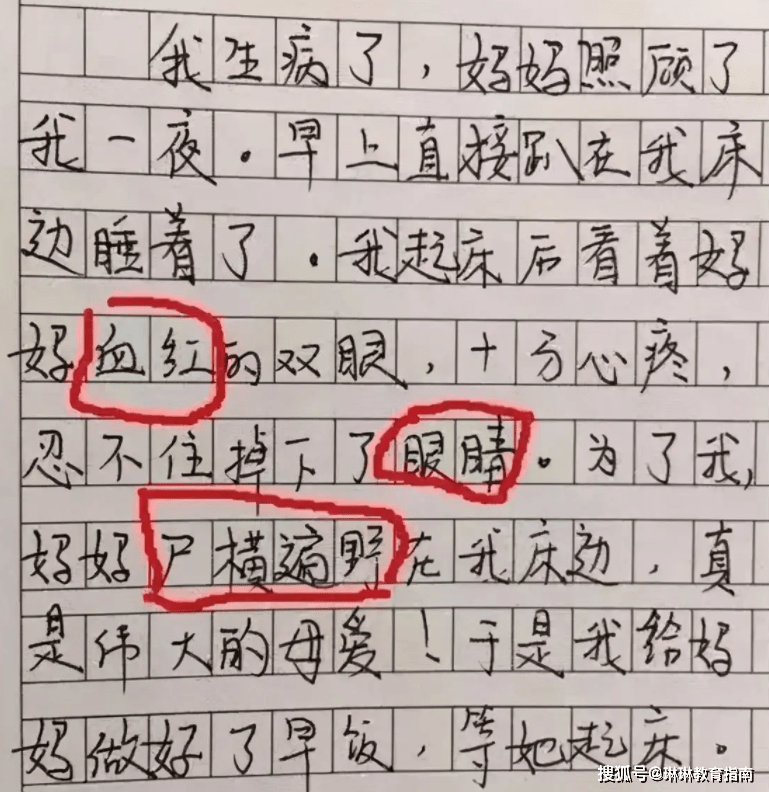 我生病了，妈妈照顾了
我一夜。早上直接趴在我床
边睡着了。我起床后看着妈
妈血红的双眼，十分心疼，
忍不住掉下了眼睛。为了我，
妈妈尸横遍野在我床边，真
是伟大的母爱！于是我给妈
妈做好了早饭，等她起床。
搜狐号@琳琳教育指南